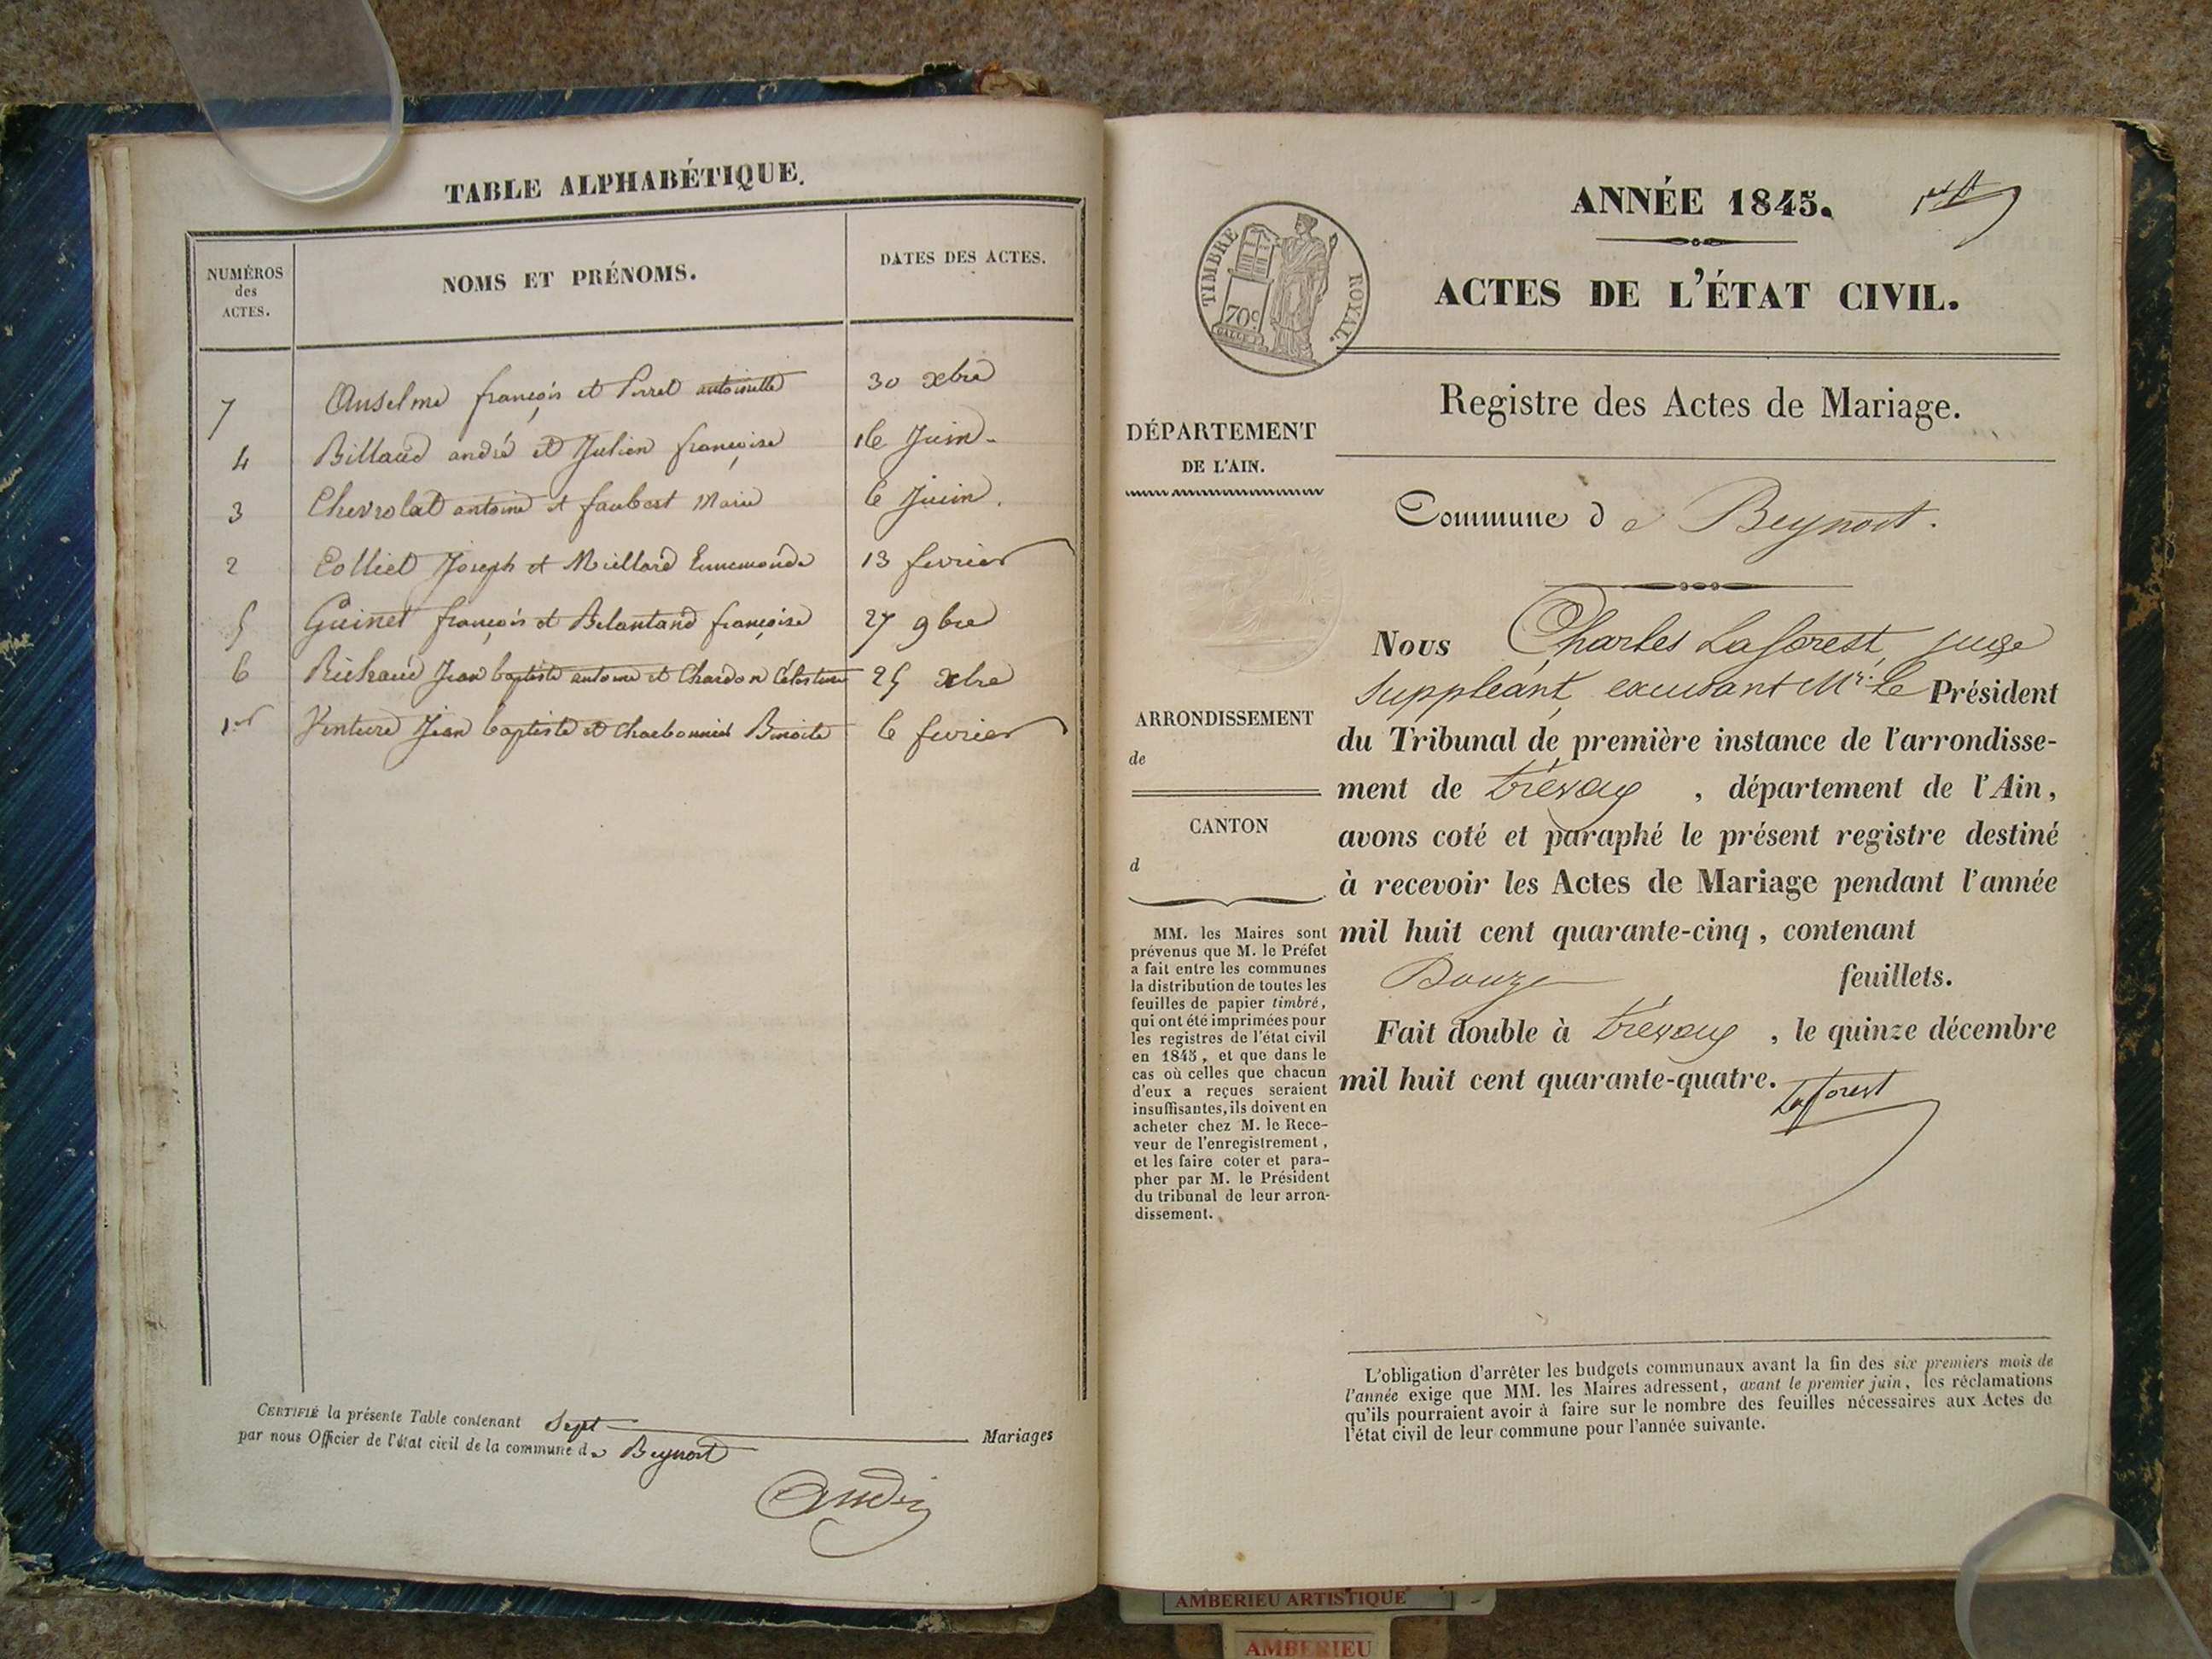 TABLE ALPHABÉTIQUE.
NUMÉROS
des
ACTES.
NOMS ET PRÉNOMS.
DATES DES ACTES.
7 Anselme françois et Perret antoinette 30 xbre
4 Billaud andré et Julien françoise 16 Juin
3 Chevrolat antoine et faubert Marie 6 Juin.
2 Colliet Joseph et Miellard Ennemonde 13 fevrier
5 Guinet françois et Belantand françoise 27 9bre
6 Richaud Jean baptiste antoine et Chardon Célestine 25 xbre
1er Venture Jean baptiste et Charbonnier Benoite 6 fevrier
CERTIFIÉ la présente Table contenant Sept Mariages
par nous Officier de l'état civil de la commune de Beynost
Andin
ANNÉE 1845.
TIMBRE
ROYAL.
70c
ACTES DE L'ÉTAT CIVIL.
Registre des Actes de Mariage.
DÉPARTEMENT
DE L'AIN.
Commune de Beynost.
Nous Charles Laforest, juge
suppléant, excusant Mr. le Président
du Tribunal de première instance de l'arrondisse-
ment de trévoux , département de l'Ain,
avons coté et paraphé le présent registre destiné
à recevoir les Actes de Mariage pendant l'année
mil huit cent quarante-cinq, contenant
Douze feuillets.
Fait double à trévoux , le quinze décembre
mil huit cent quarante-quatre.
Laforest
ARRONDISSEMENT
de
CANTON
d
MM. les Maires sont
prévenus que M. le Préfet
a fait entre les communes
la distribution de toutes les
feuilles de papier timbré,
qui ont été imprimées pour
les registres de l'état civil
en 1845, et que dans le
cas où celles que chacun
d'eux a reçues seraient
insuffisantes, ils doivent en
acheter chez M. le Rece-
veur de l'enregistrement,
et les faire coter et para-
pher par M. le Président
du tribunal de leur arron-
dissement.
L'obligation d'arrêter les budgets communaux avant la fin des six premiers mois de
l'année exige que MM. les Maires adressent, avant le premier juin, les réclamations
qu'ils pourraient avoir à faire sur le nombre des feuilles nécessaires aux Actes de
l'état civil de leur commune pour l'année suivante.
AMBERIEU ARTISTIQUE
AMBERIEU